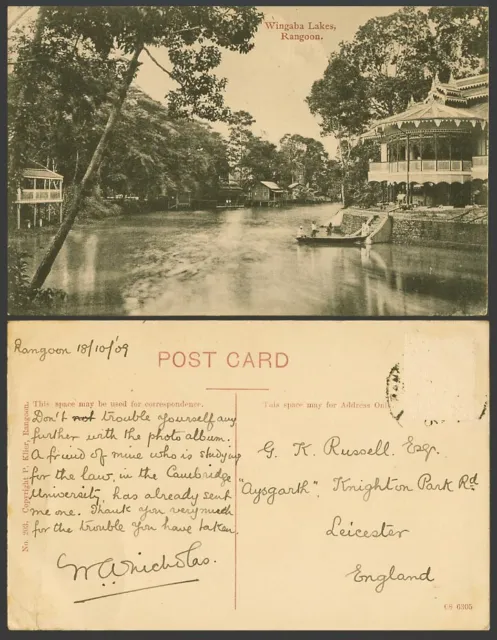 Wingaba Lakes,
Rangoon.
Rangoon 18/10/'09
POST CARD
This space may be used for correspondence.
This space may for Address On
Don't not trouble yourself any
further with the photo album.
A friend of mine who is studying
for the law, in the Cambridge
University, has already sent
me one. Thank you very much
for the trouble you have taken.
G. K. Russell. Esqr.
"Aysgarth", Knighton Park Rd.
Leicester
England
No. 203. Copyright P. Klier, Rangoon.